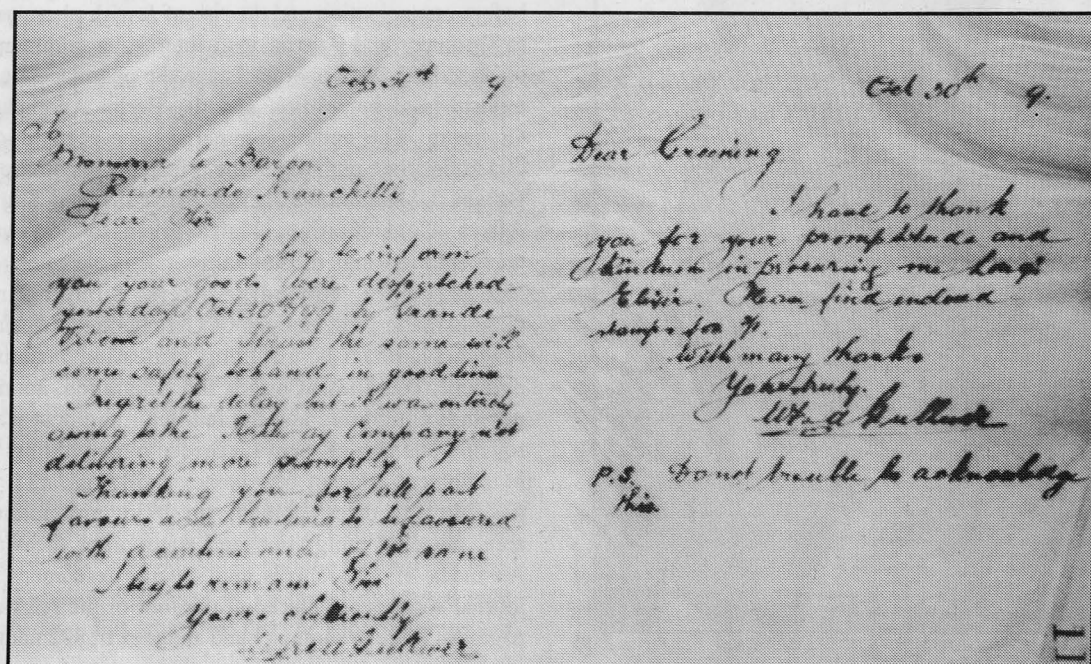 Oct 31st 9
To
Monsieur le Baron
Raimondo Franchetti
Dear Sir
I beg to inform
you your goods were despatched
yesterday Oct 30th/99 by Grande
Vitesse and trust the same will
come safely to hand in good time
I regret the delay but it was entirely
owing to the Railway Company not
delivering more promptly
Thanking you for all past
favours and to be favoured
with a continuance of the same
I beg to remain Sir
Yours obediently
Alfred Gulliver
Oct 30th 9.
Dear Greening
I have to thank
you for your promptitude and
kindness in procuring me
Elixir. Please find enclosed
stamps for
With many thanks
Yours truly.
Gulliver
P.S. Do not trouble to acknowledge
this